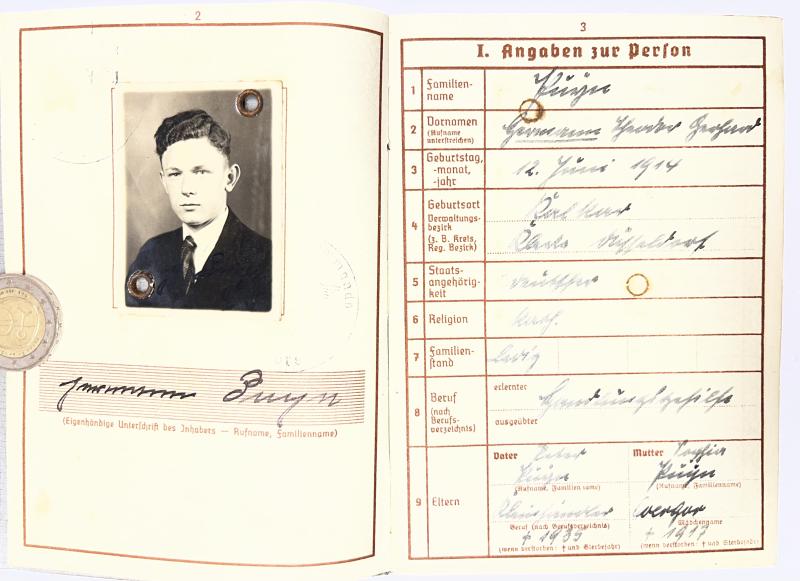 2
Hermann Puyn
(Eigenhändige Unterschrift des Inhabers — Rufname, Familienname)
3
I. Angaben zur Person
1 Familien-
name
Puyn
2 Vornamen
(Rufname
unterstreichen)
Hermann Theodor Gerhard
3 Geburtstag,
-monat,
-jahr
12. Juni 1914
4 Geburtsort
Verwaltungs-
bezirk
(z. B. Kreis,
Reg. Bezirk)
Kalkar
Düsseldorf
5 Staats-
angehörig-
keit
6 Religion
kath.
7 Familien-
stand
ledig
8 Beruf
(nach
Berufs-
verzeichnis)
erlernter
Handlungsgehilfe
ausgeübter
9 Eltern
Vater Peter
Puyn
(Rufname, Familienname)
Beruf (nach Berufsverzeichnis)
† 1935
(wenn verstorben: † und Sterbejahr)
Mutter Sophia
Puyn
(Rufname, Familienname)
Mädchenname
† 1917
(wenn verstorben: † und Sterbejahr)